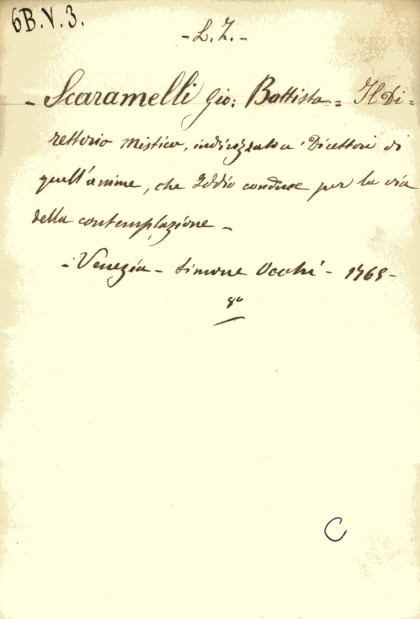 6B.V.3.
- L. Z. -
- Scaramelli Gio: Battista = Il Di=
rettorio mistico, indirizzato a' Direttori di
quell'anime, che Iddio conduce per la via
della contemplazione -
- Venezia - Simone Occhi - 1765 -
8º
C